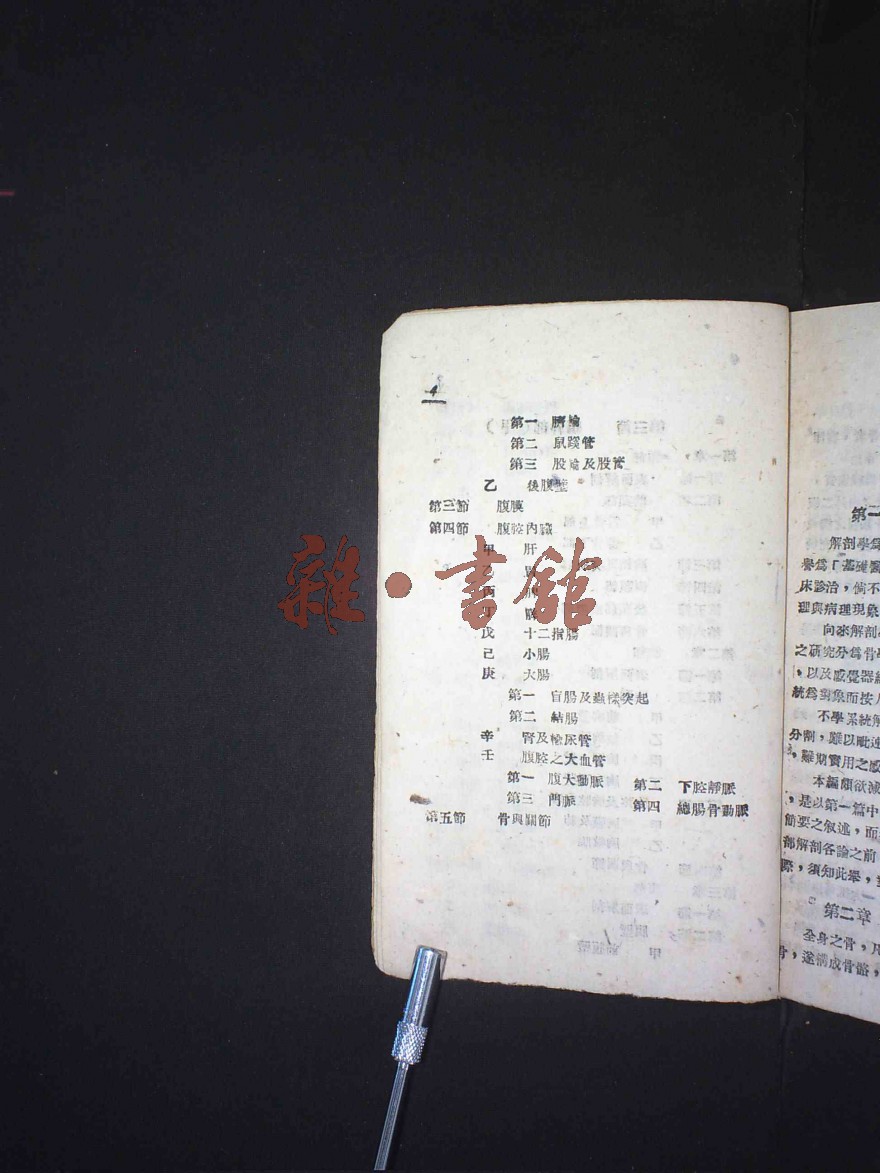 4
第一 臍輪
第二 鼠蹊管
第三 股輪及股管
乙 後腹壁
第三節 腹膜
第四節 腹腔內臟
甲 肝
乙
丙
戊 十二指腸
己 小腸
庚 大腸
第一 盲腸及蟲樣突起
第二 結腸
辛 腎及輸尿管
壬 腹腔之大血管
第一 腹大動脈 第二 下腔靜脈
第三 門脈 第四 總腸骨動脈
第五節 骨與關節
雜·書館
第一
解剖學爲
譽爲「基礎醫
床診治,倘不
理與病理現象
向來解剖
之研究分爲骨學
,以及感覺器
統爲對象而按
不學系統解
分剖,難以毗連
,難期實用之感
本編顧欲減
,是以第一篇中
簡要之叙述,而
部解剖各論之前
際,須知此舉,
第二章
全身之骨,凡
骨,遂構成骨骼,